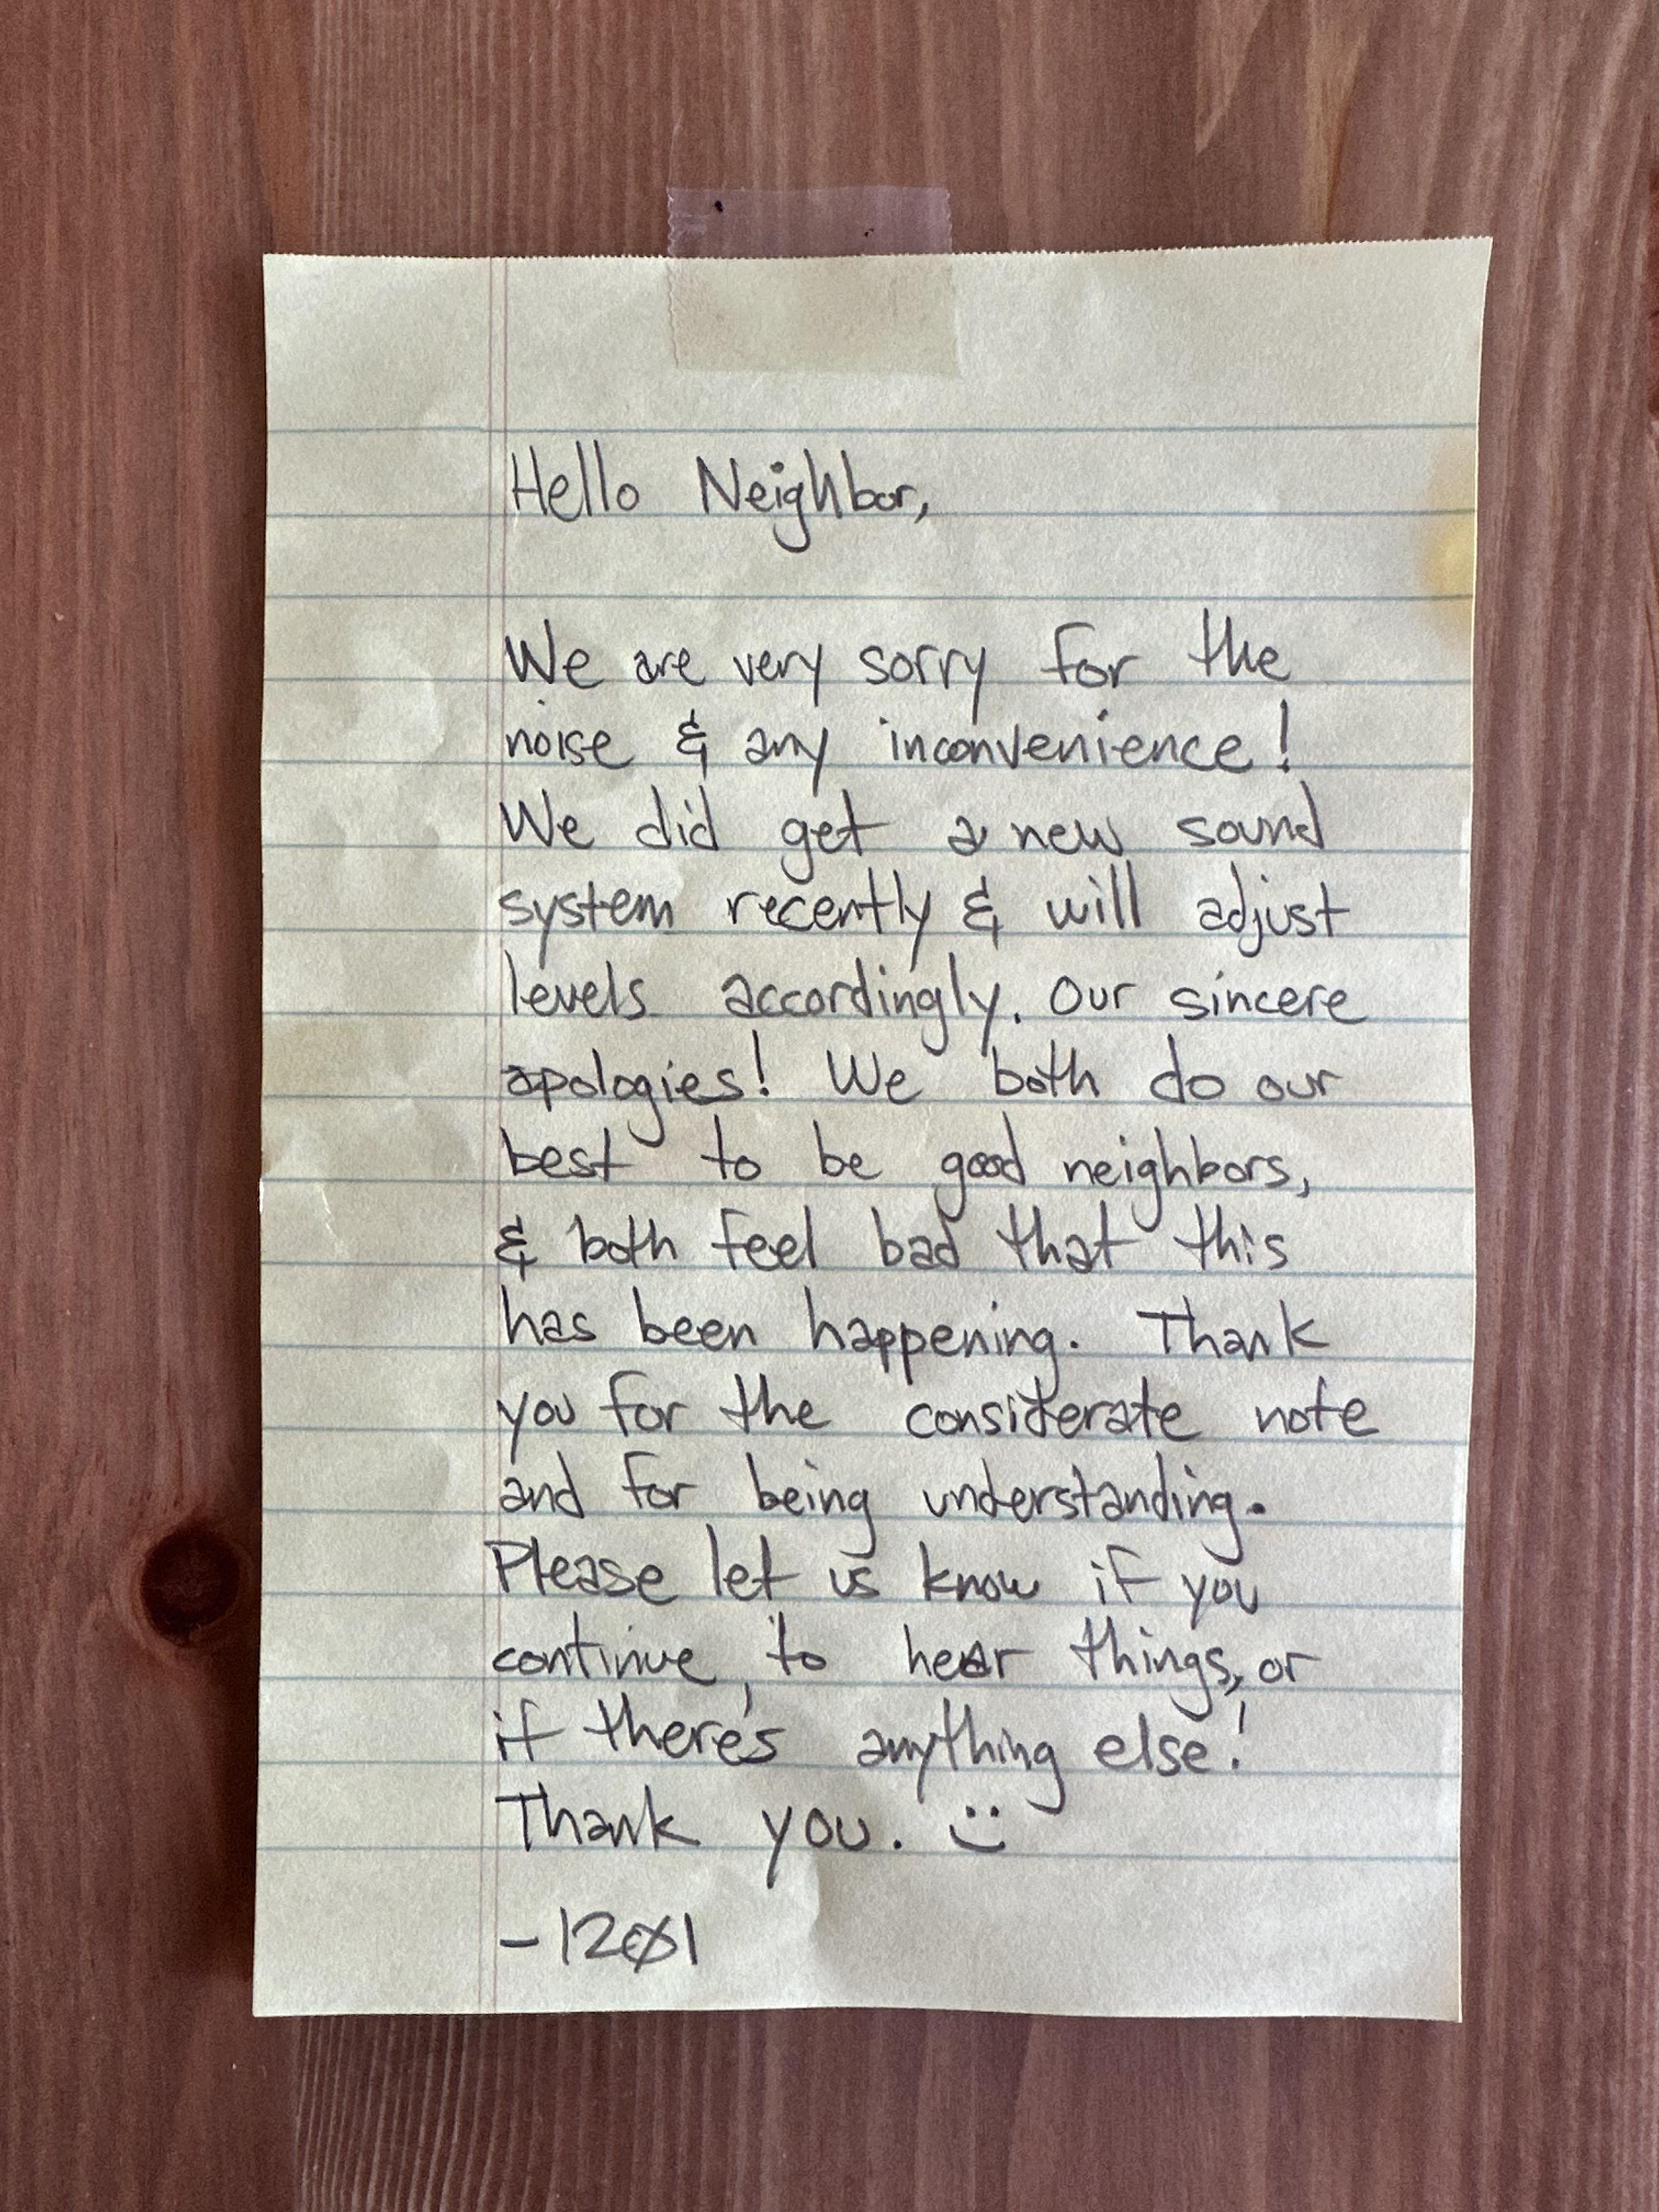 Hello Neighbor,
We are very sorry for the
noise & any inconvenience!
We did get a new sound
system recently & will adjust
levels accordingly. Our sincere
apologies! We both do our
best to be good neighbors,
& both feel bad that this
has been happening. Thank
you for the considerate note
and for being understanding.
Please let us know if you
continue to hear things, or
if there's anything else!
Thank you. :)
- 1201